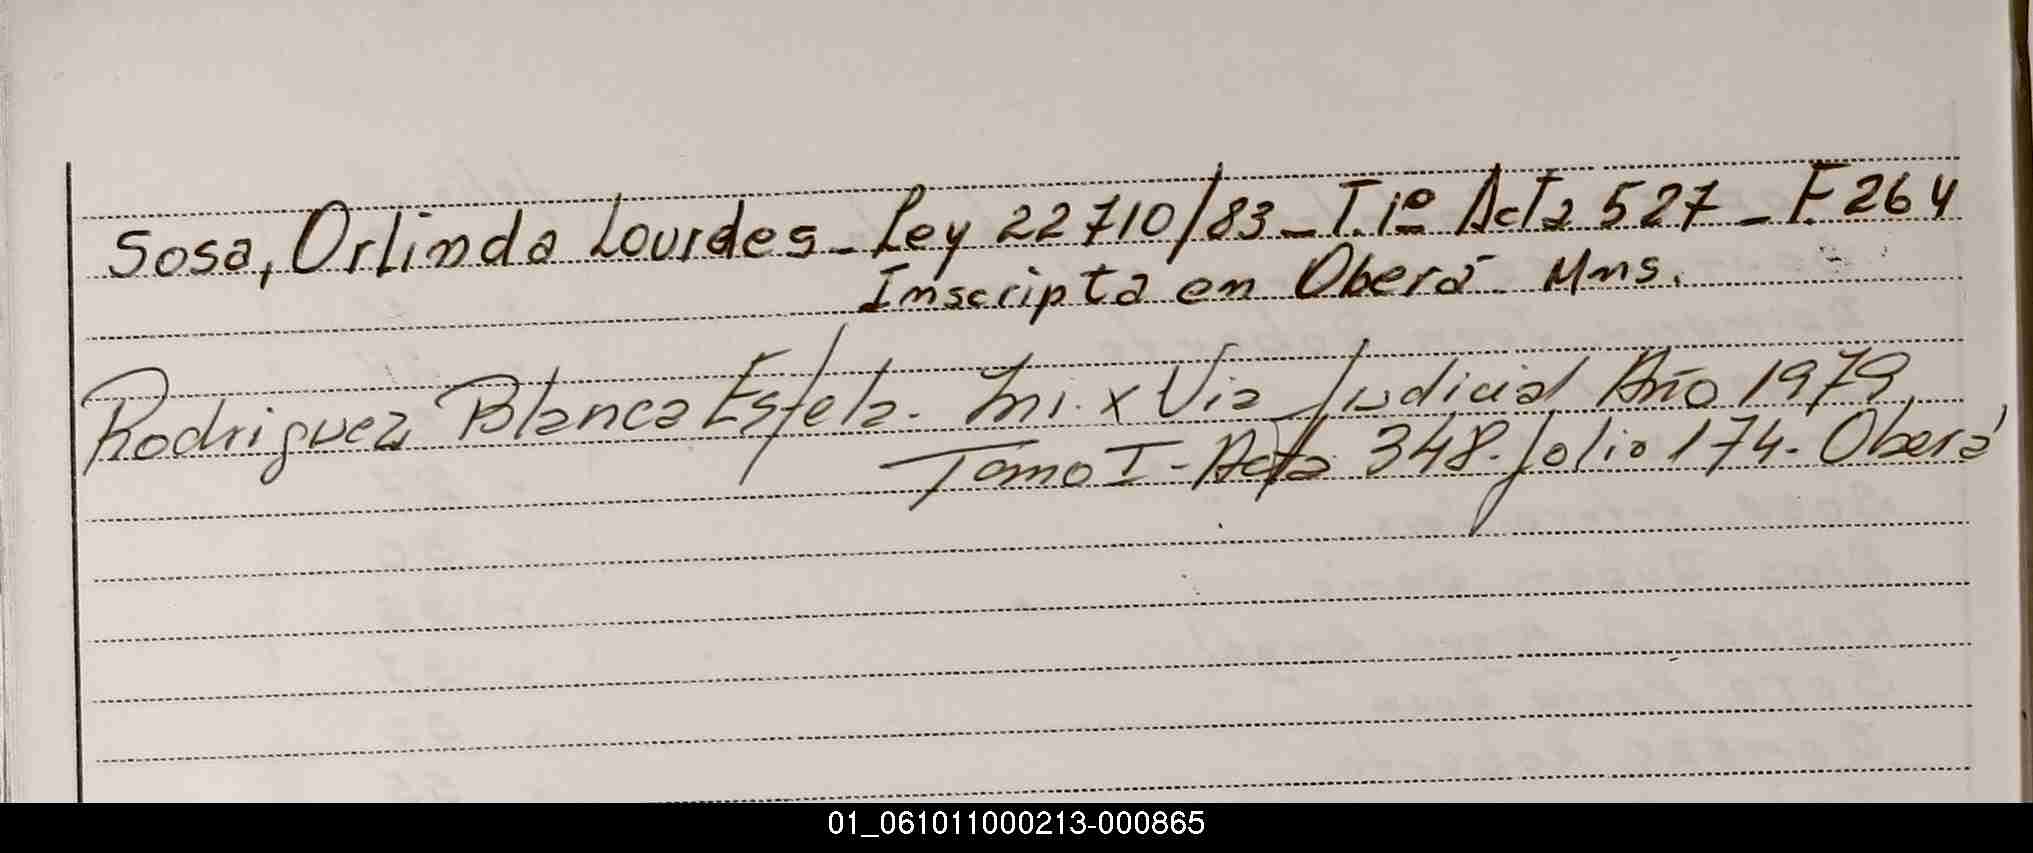 Sosa, Orlinda Lourdes - Ley 22710/83 - T. 1º Acta 527 - F. 264
Inscripta en Oberá - Mns.
Rodriguez Blanca Estela. Ini. x Via Judicial Año 1979,
Tomo I - Acta 348. folio 174. Oberá
01_061011000213-000865